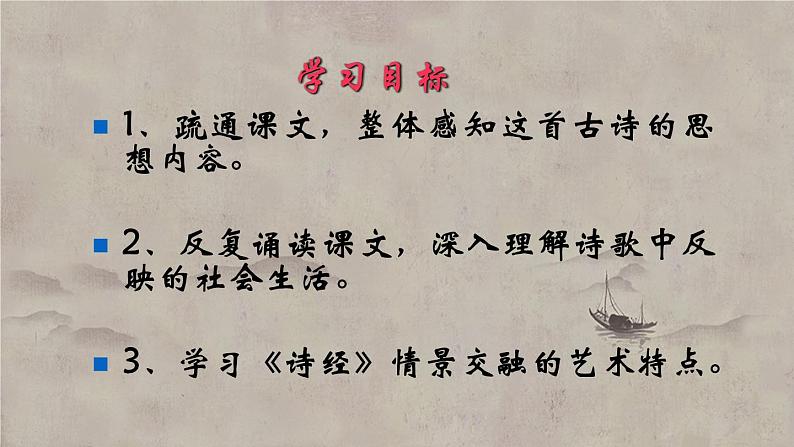 学习目标
1、疏通课文，整体感知这首古诗的思
想内容。
2、反复诵读课文，深入理解诗歌中反
映的社会生活。
3、学习《诗经》情景交融的艺术特点。